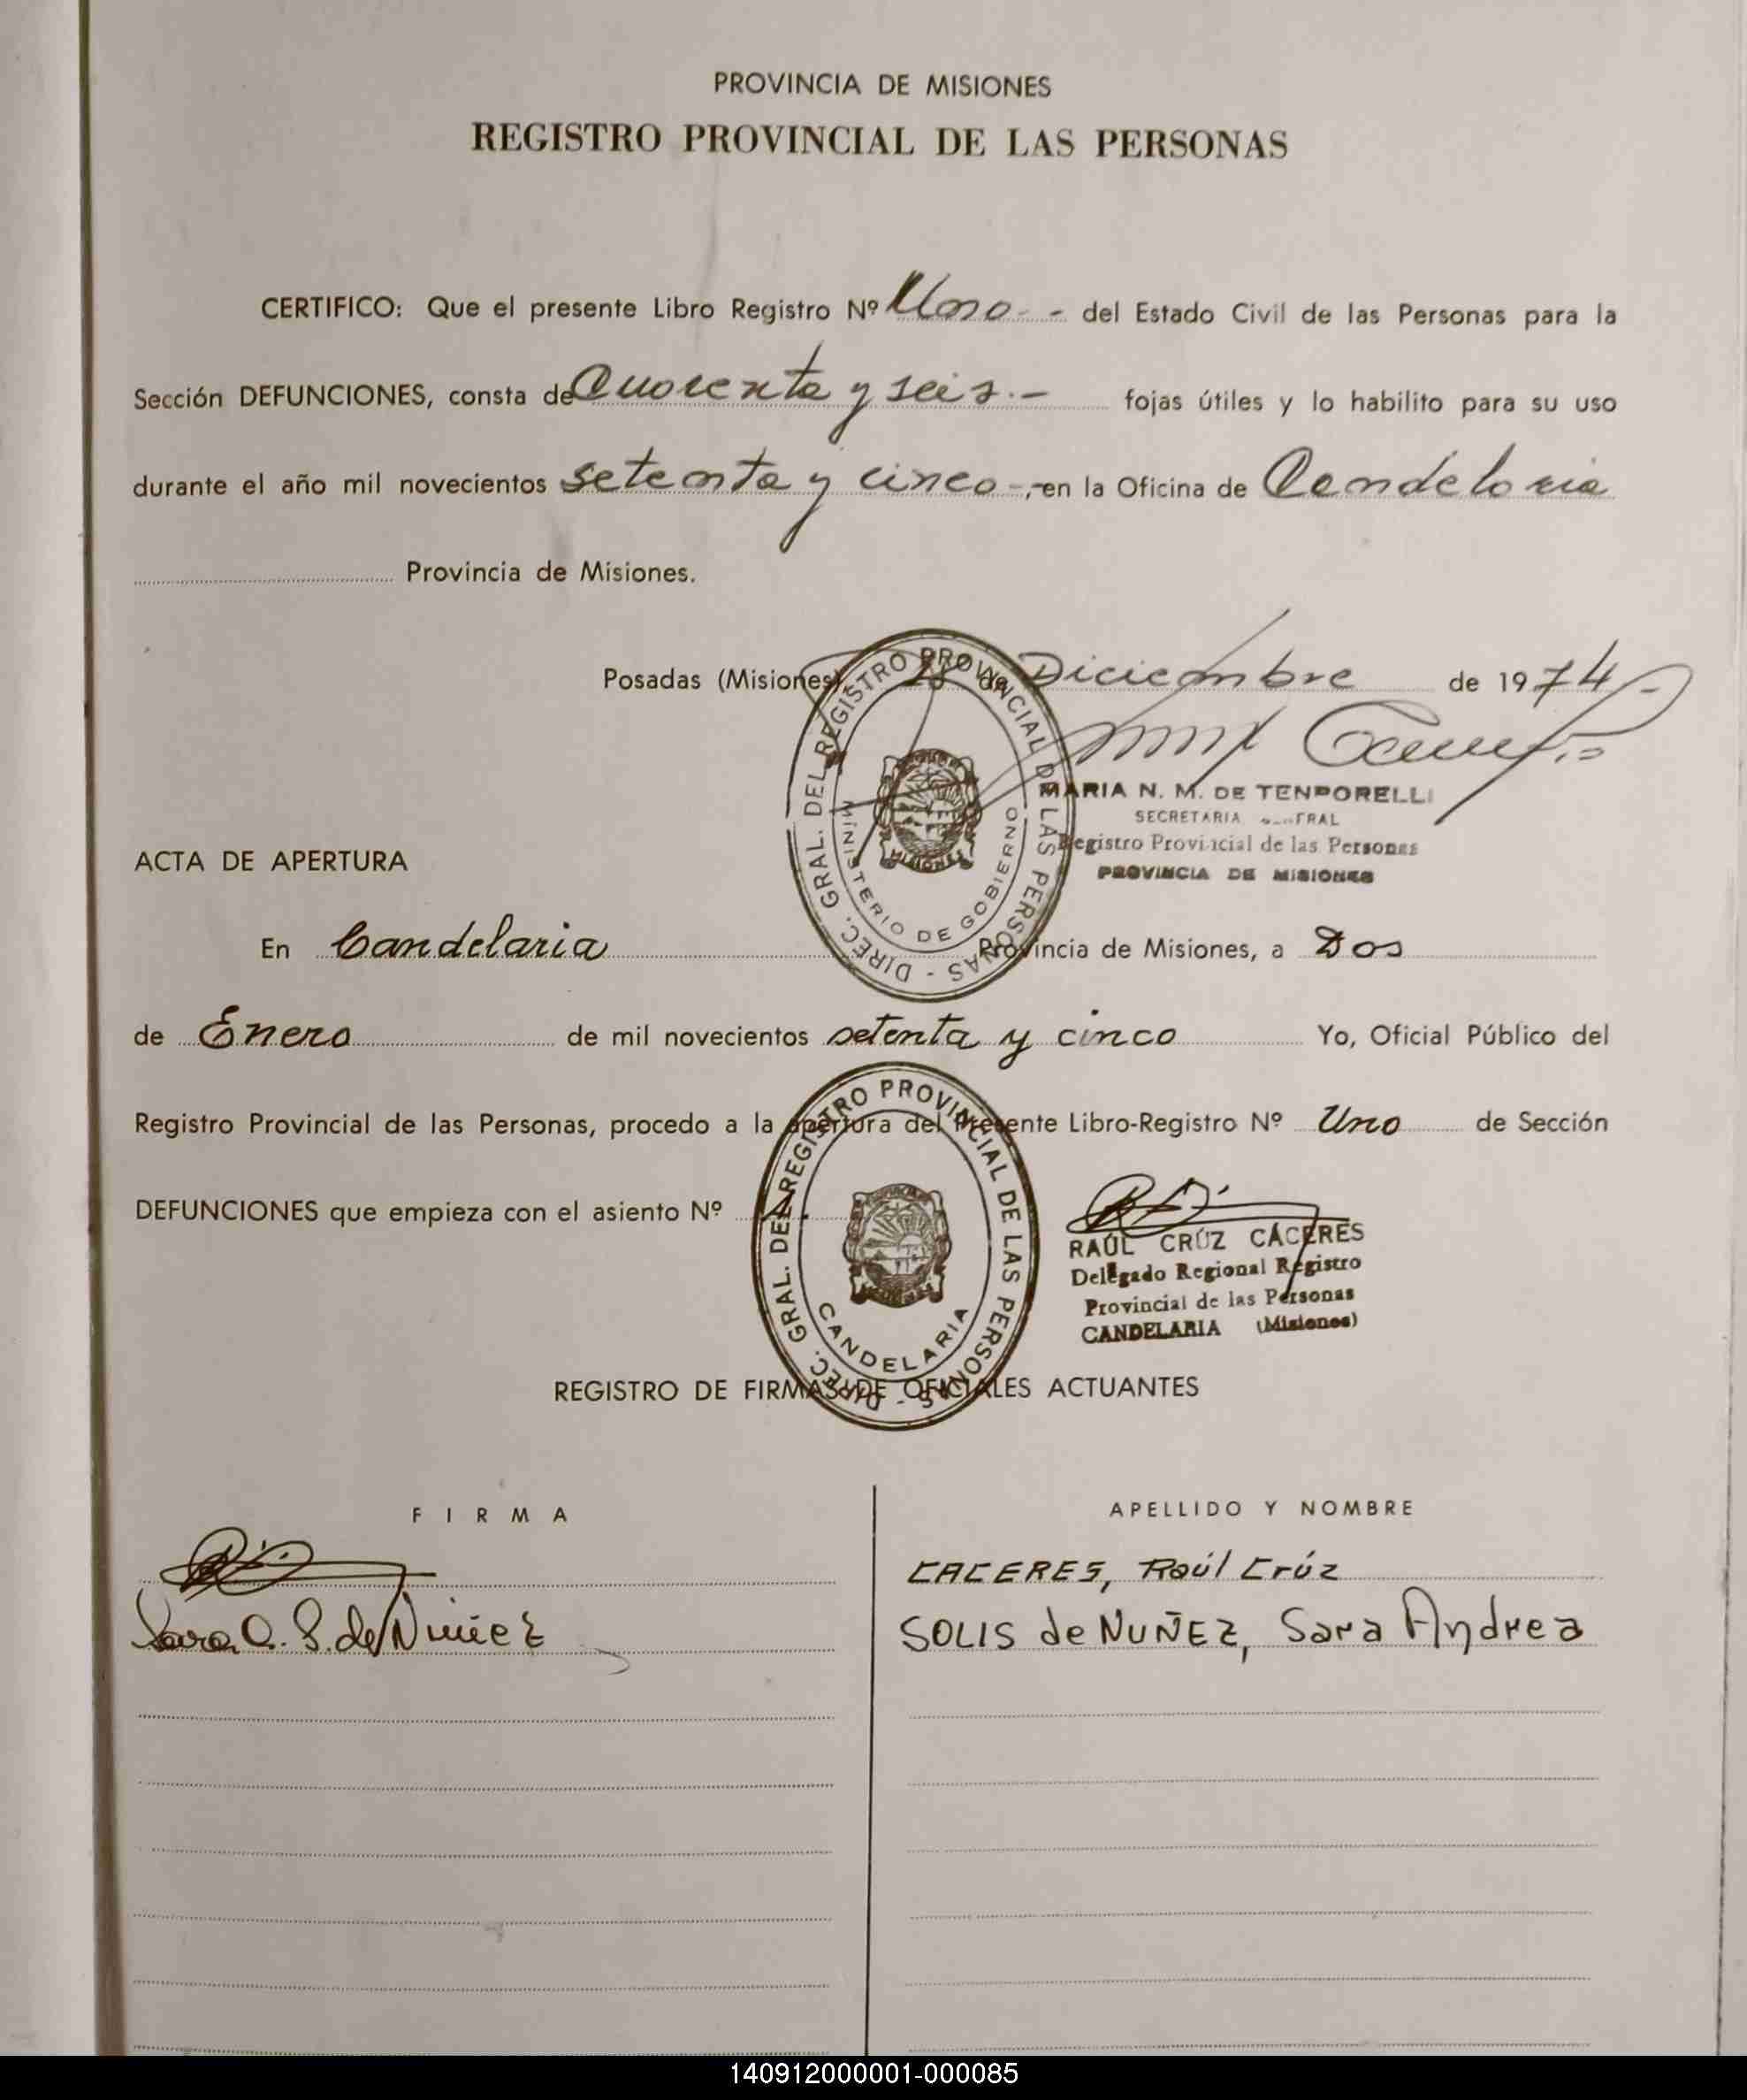 PROVINCIA DE MISIONES
REGISTRO PROVINCIAL DE LAS PERSONAS
CERTIFICO: Que el presente Libro Registro Nº Uno - - del Estado Civil de las Personas para la
Sección DEFUNCIONES, consta de Cuarenta y seis.- fojas útiles y lo habilito para su uso
durante el año mil novecientos setenta y cinco -,- en la Oficina de Candelaria
Provincia de Misiones.
Posadas (Misiones) de Diciembre de 1974
DIREC. GRAL. DEL REGISTRO PROVINCIAL DE LAS PERSONAS -
MINISTERIO DE GOBIERNO
MISIONES
MARIA N. M. DE TENPORELLI
SECRETARIA
Registro Provincial de las Personas
PROVINCIA DE MISIONES
ACTA DE APERTURA
En Candelaria Provincia de Misiones, a Dos
de Enero de mil novecientos setenta y cinco Yo, Oficial Público del
Registro Provincial de las Personas, procedo a la apertura del presente Libro-Registro Nº Uno de Sección
DEFUNCIONES que empieza con el asiento Nº 1.
DIREC. GRAL. DEL REGISTRO PROVINCIAL DE LAS PERSONAS -
CANDELARIA
RAÚL CRÚZ CÁCERES
Delegado Regional Registro
Provincial de las Personas
CANDELARIA (Misiones)
REGISTRO DE FIRMAS DE OFICIALES ACTUANTES
FIRMA APELLIDO Y NOMBRE
CACERES, Raúl Crúz
Sara A. S. de Nuñez SOLIS de NUÑEZ, Sara Andrea
140912000001-000085